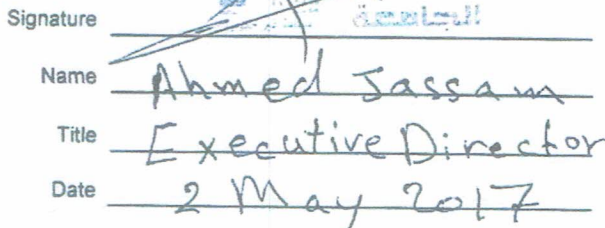 Signature
Name Ahmed Jassam
Title Executive Director
Date 2 May 2017